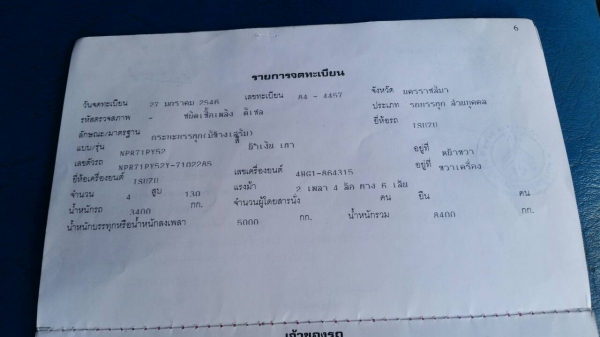 6
รายการจดทะเบียน
วันจดทะเบียน 27 มกราคม 2546 เลขทะเบียน 84 - 4457 จังหวัด นครราชสีมา
รหัสตรวจสภาพ - ชนิดเชื้อเพลิง ดีเซล ประเภท รถบรรทุก ส่วนบุคคล
ลักษณะ/มาตรฐาน กระบะบรรทุก(มีข้างเสริม) ยี่ห้อรถ ISUZU
แบบ/รุ่น NPR71PY52 สี น้ำเงิน เทา
เลขตัวรถ NPR71PY52Y-7102285 อยู่ที่ หน้าขวา
ยี่ห้อเครื่องยนต์ ISUZU เลขเครื่องยนต์ 4HG1-864315 อยู่ที่ ขวาเครื่อง
จำนวน 4 สูบ 130 แรงม้า 2 เพลา 4 ล้อ ยาง 6 เส้น
น้ำหนักรถ 3400 กก. จำนวนผู้โดยสารนั่ง คน ยืน คน
น้ำหนักบรรทุกหรือน้ำหนักลงเพลา 5000 กก. น้ำหนักรวม 8400 กก.
เจ้าของรถ